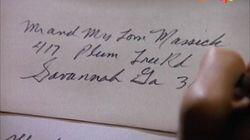 Mr and Mrs Tom Massick
417 Plum Tree Rd
Savannah Ga 3